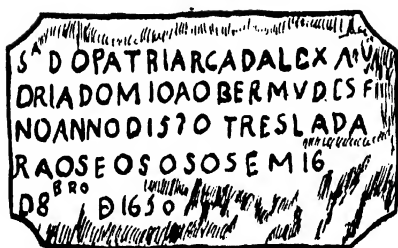 Sᴬ D OPATRIARCADALEXAN
DRIADOMIOAOBERMVDESFI
NOANNODI570 TRESLADA
RAOSEOSOSOSEMI6
D8ᴮᴿᴼ Ð I650